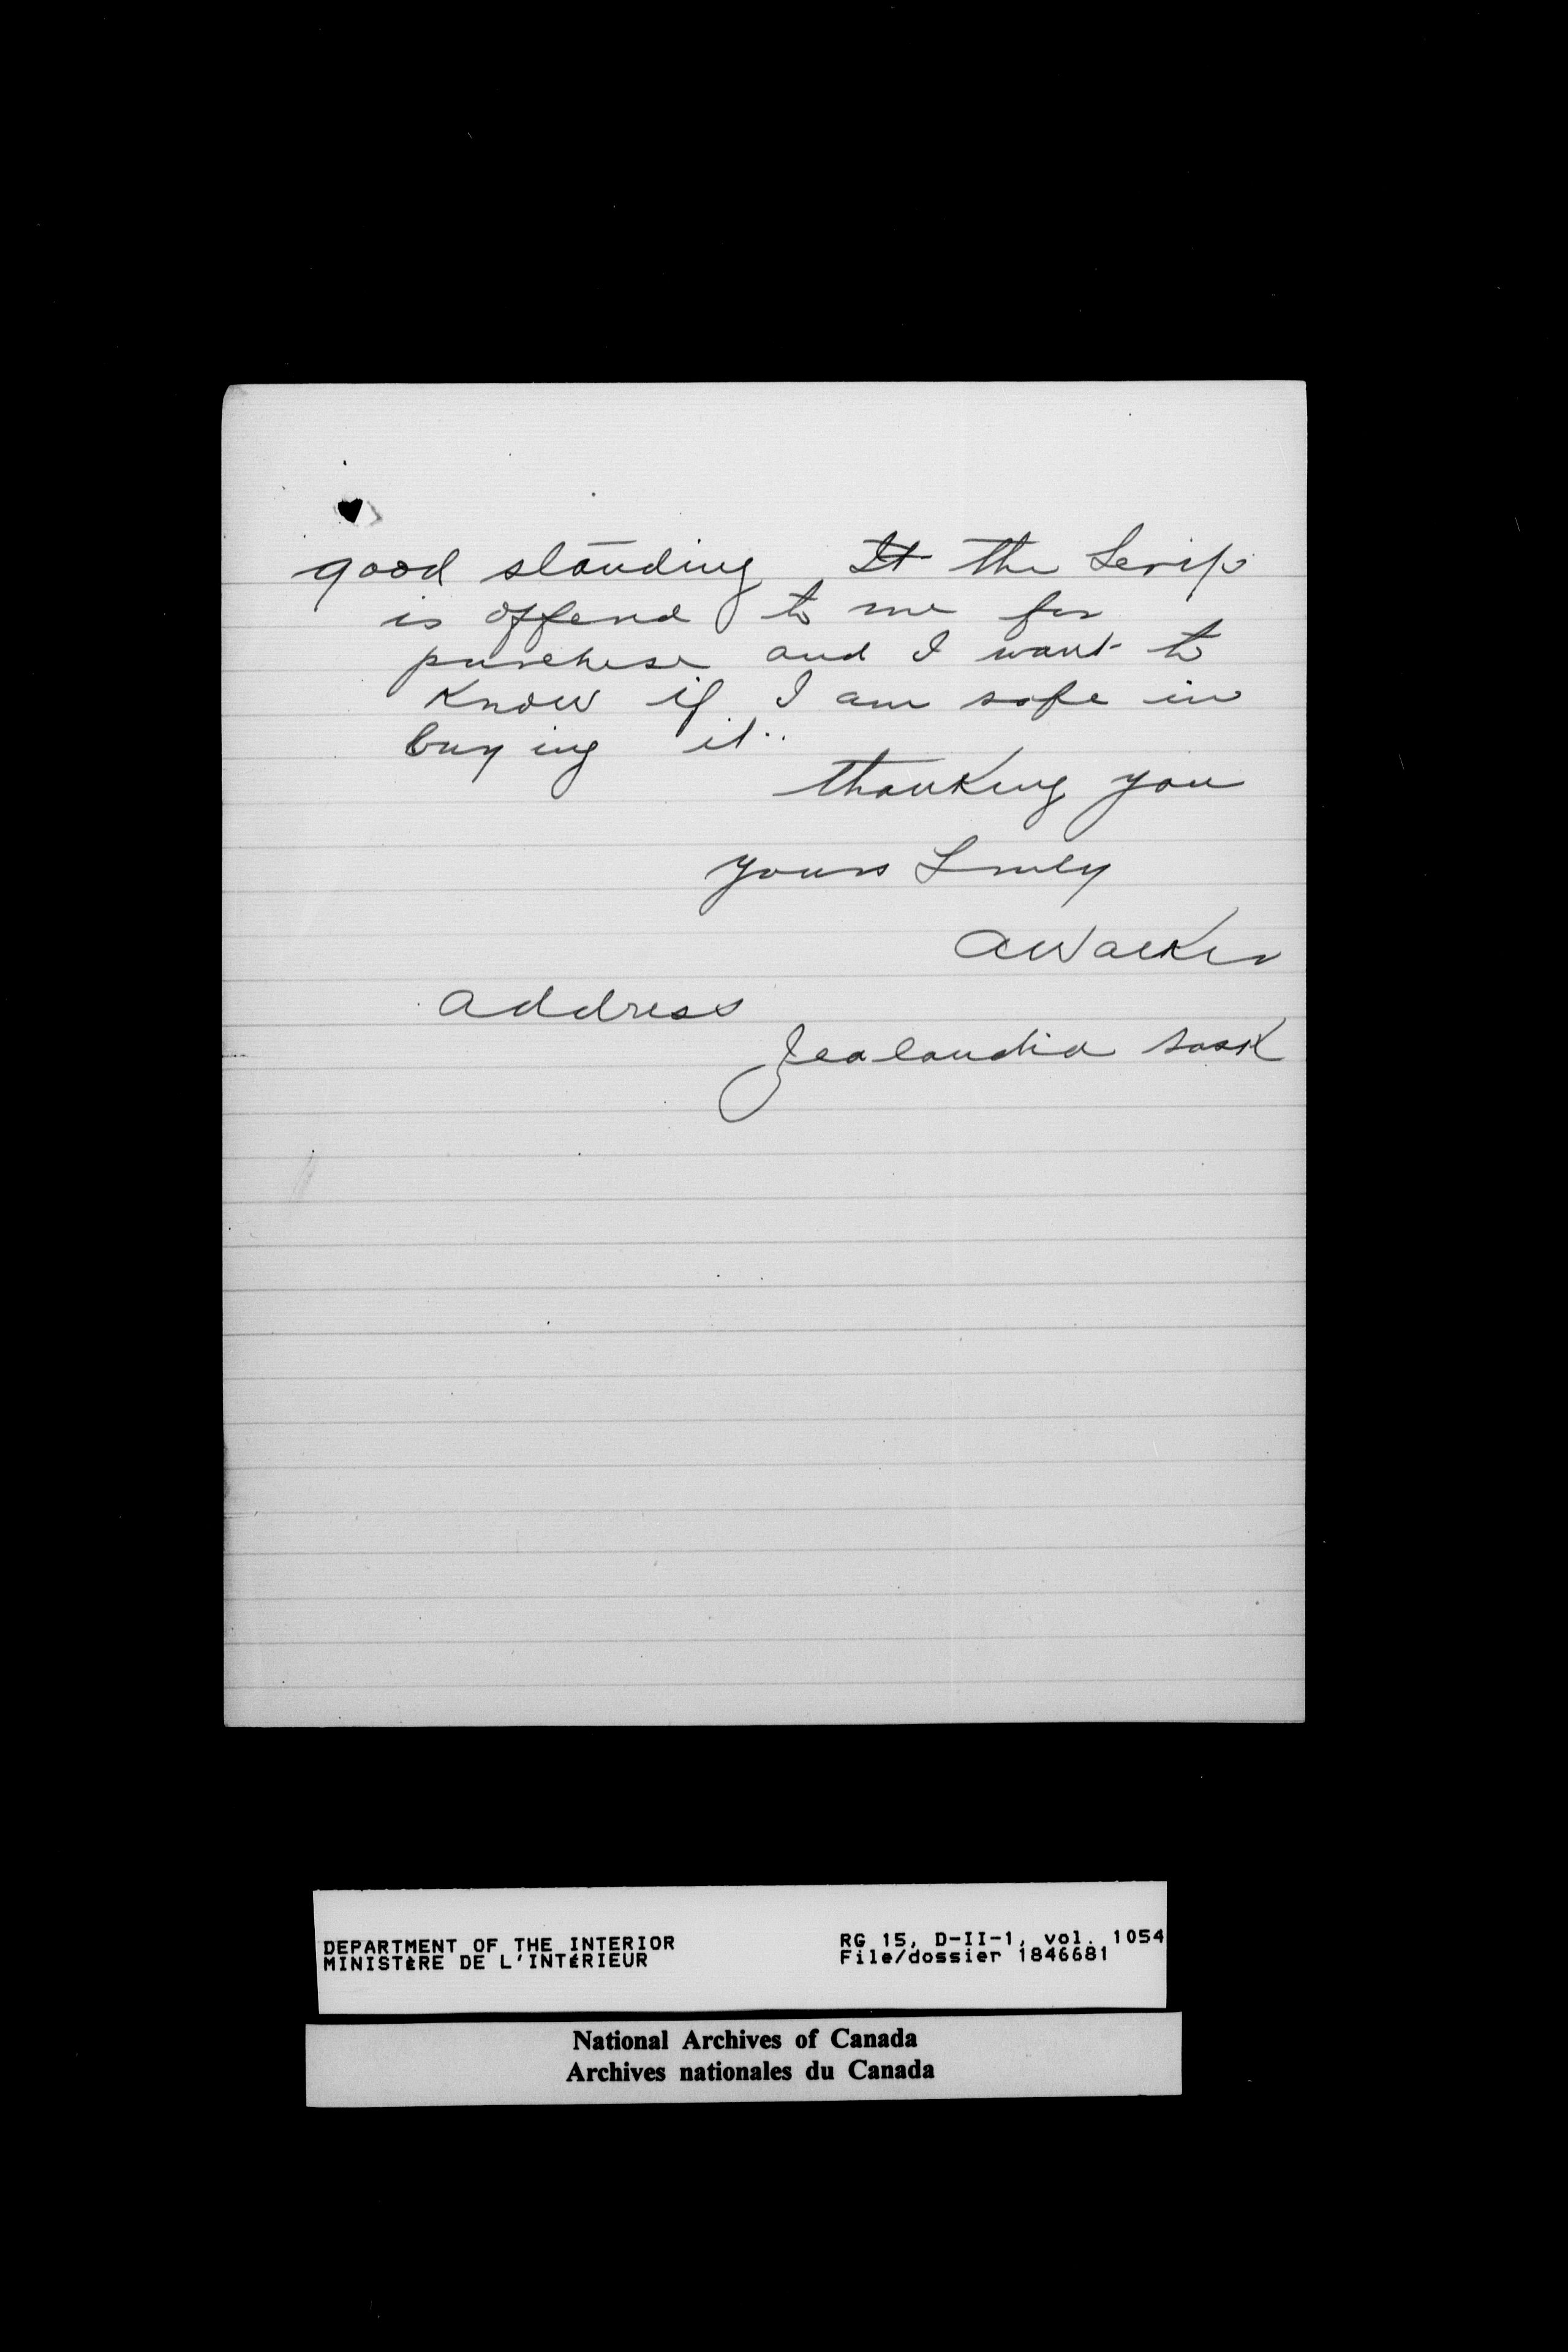 good standing It the Scrip
is offerd to me for
purchese and I want to
know if I am safe in
buying it..
thanking you
yours Truly
A Walker
address
Zealandia Sask
DEPARTMENT OF THE INTERIOR
MINISTÈRE DE L'INTÉRIEUR
RG 15, D-II-1, vol. 1054
File/dossier 1846681
National Archives of Canada
Archives nationales du Canada